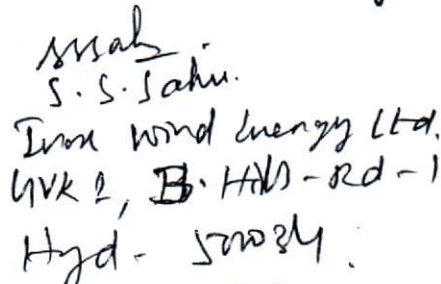 S. S. Sahu.
Inox Wind Energy Ltd.
GVK 1, B. Hills - Rd - 1
Hyd - 500034.